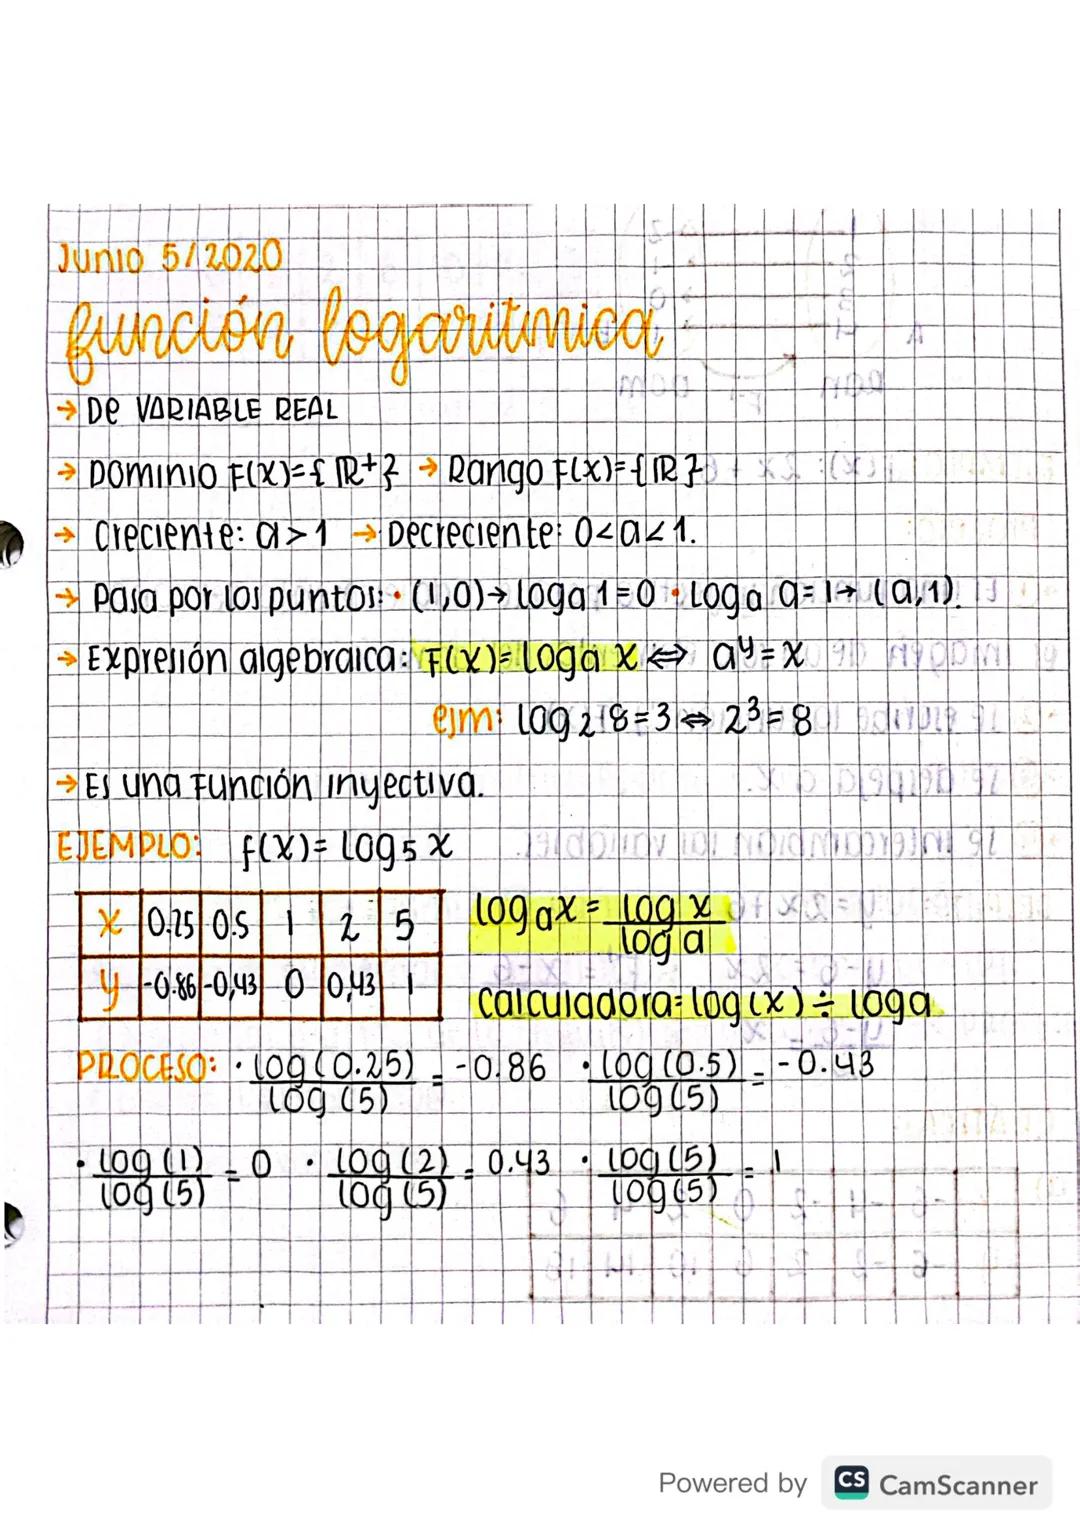 Junio 5/2020
función logaritmica
→ De VARIABLE REAL
→ Dominio F(x)={ℝ+} → Rango F(x)={ℝ}
→ Creciente: a>1 → Decreciente: 0<a<1.
→ Pasa por los puntos: • (1,0)→ loga 1=0 • Loga a=1→ (a,1).
→ Expresión algebraica: F(x)= Loga x ⇔ a^y=x
ejm: log₂ 8=3 ⇔ 2³=8
→ Es una Función inyectiva.
EJEMPLO: f(x)= log₅ x
x 0.25 0.5 1 2 5
y -0.86 -0,43 0 0,43 1
log a x = log x / log a
calculadora= log(x) ÷ loga
PROCESO: • log(0.25) / log(5) = -0.86 • log(0.5) / log(5) = -0.43
• log(1) / log(5) = 0 • log(2) / log(5) = 0.43 • log(5) / log(5) = 1
Powered by CS CamScanner